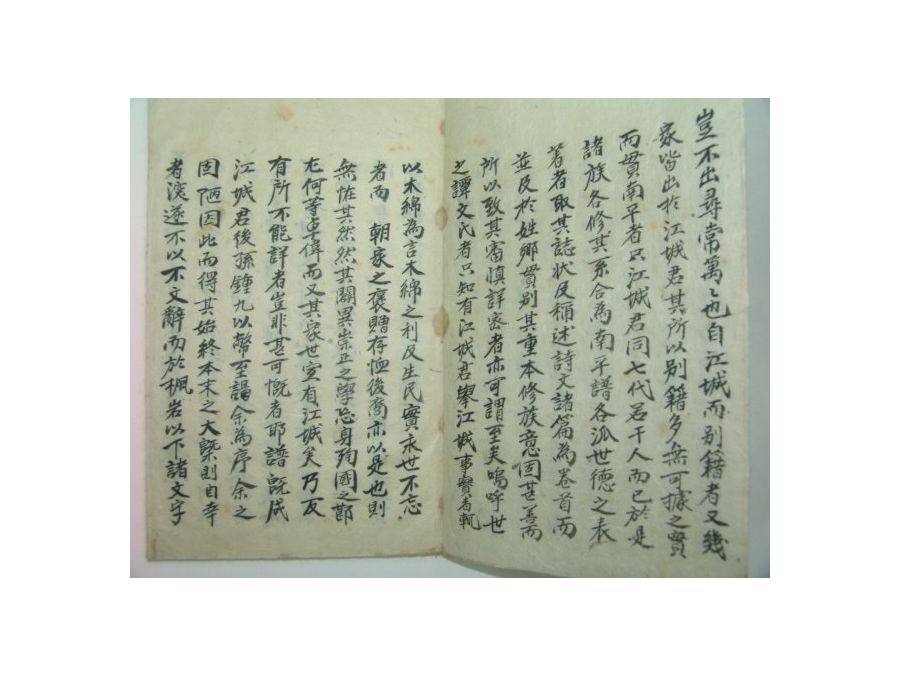 豈不出尋常萬〻也自江城而別籍者又幾
家皆出於江城君其所以別籍多無可據之實
而貫南平者只江城君同七代若干人而已於是
諸族各修其系合為南平譜各派世德之表
著者取其誌狀及稱述詩文諸篇為卷首而
並及於姓鄉貫別其重本修族意固甚善而
所以致其審慎詳密者亦可謂至矣嗚呼世
之譚文氏者只知有江城君擧江城事實者輒
以木綿為言木綿之利及生民實永世不忘
者而 朝家之褒贈存恤後裔亦以是也則
無恠其然然其闢異崇正之學忘身殉國之節
尤何等卓偉而又其家世宜有江城矣乃反
有所不能詳者豈非甚可慨者耶譜旣成
江城君後孫鍾九以幣至謁余為序余之
固陋因此而得其始終本末之大槩則自幸
者深遂不以不文辭而於楓岩以下諸文字